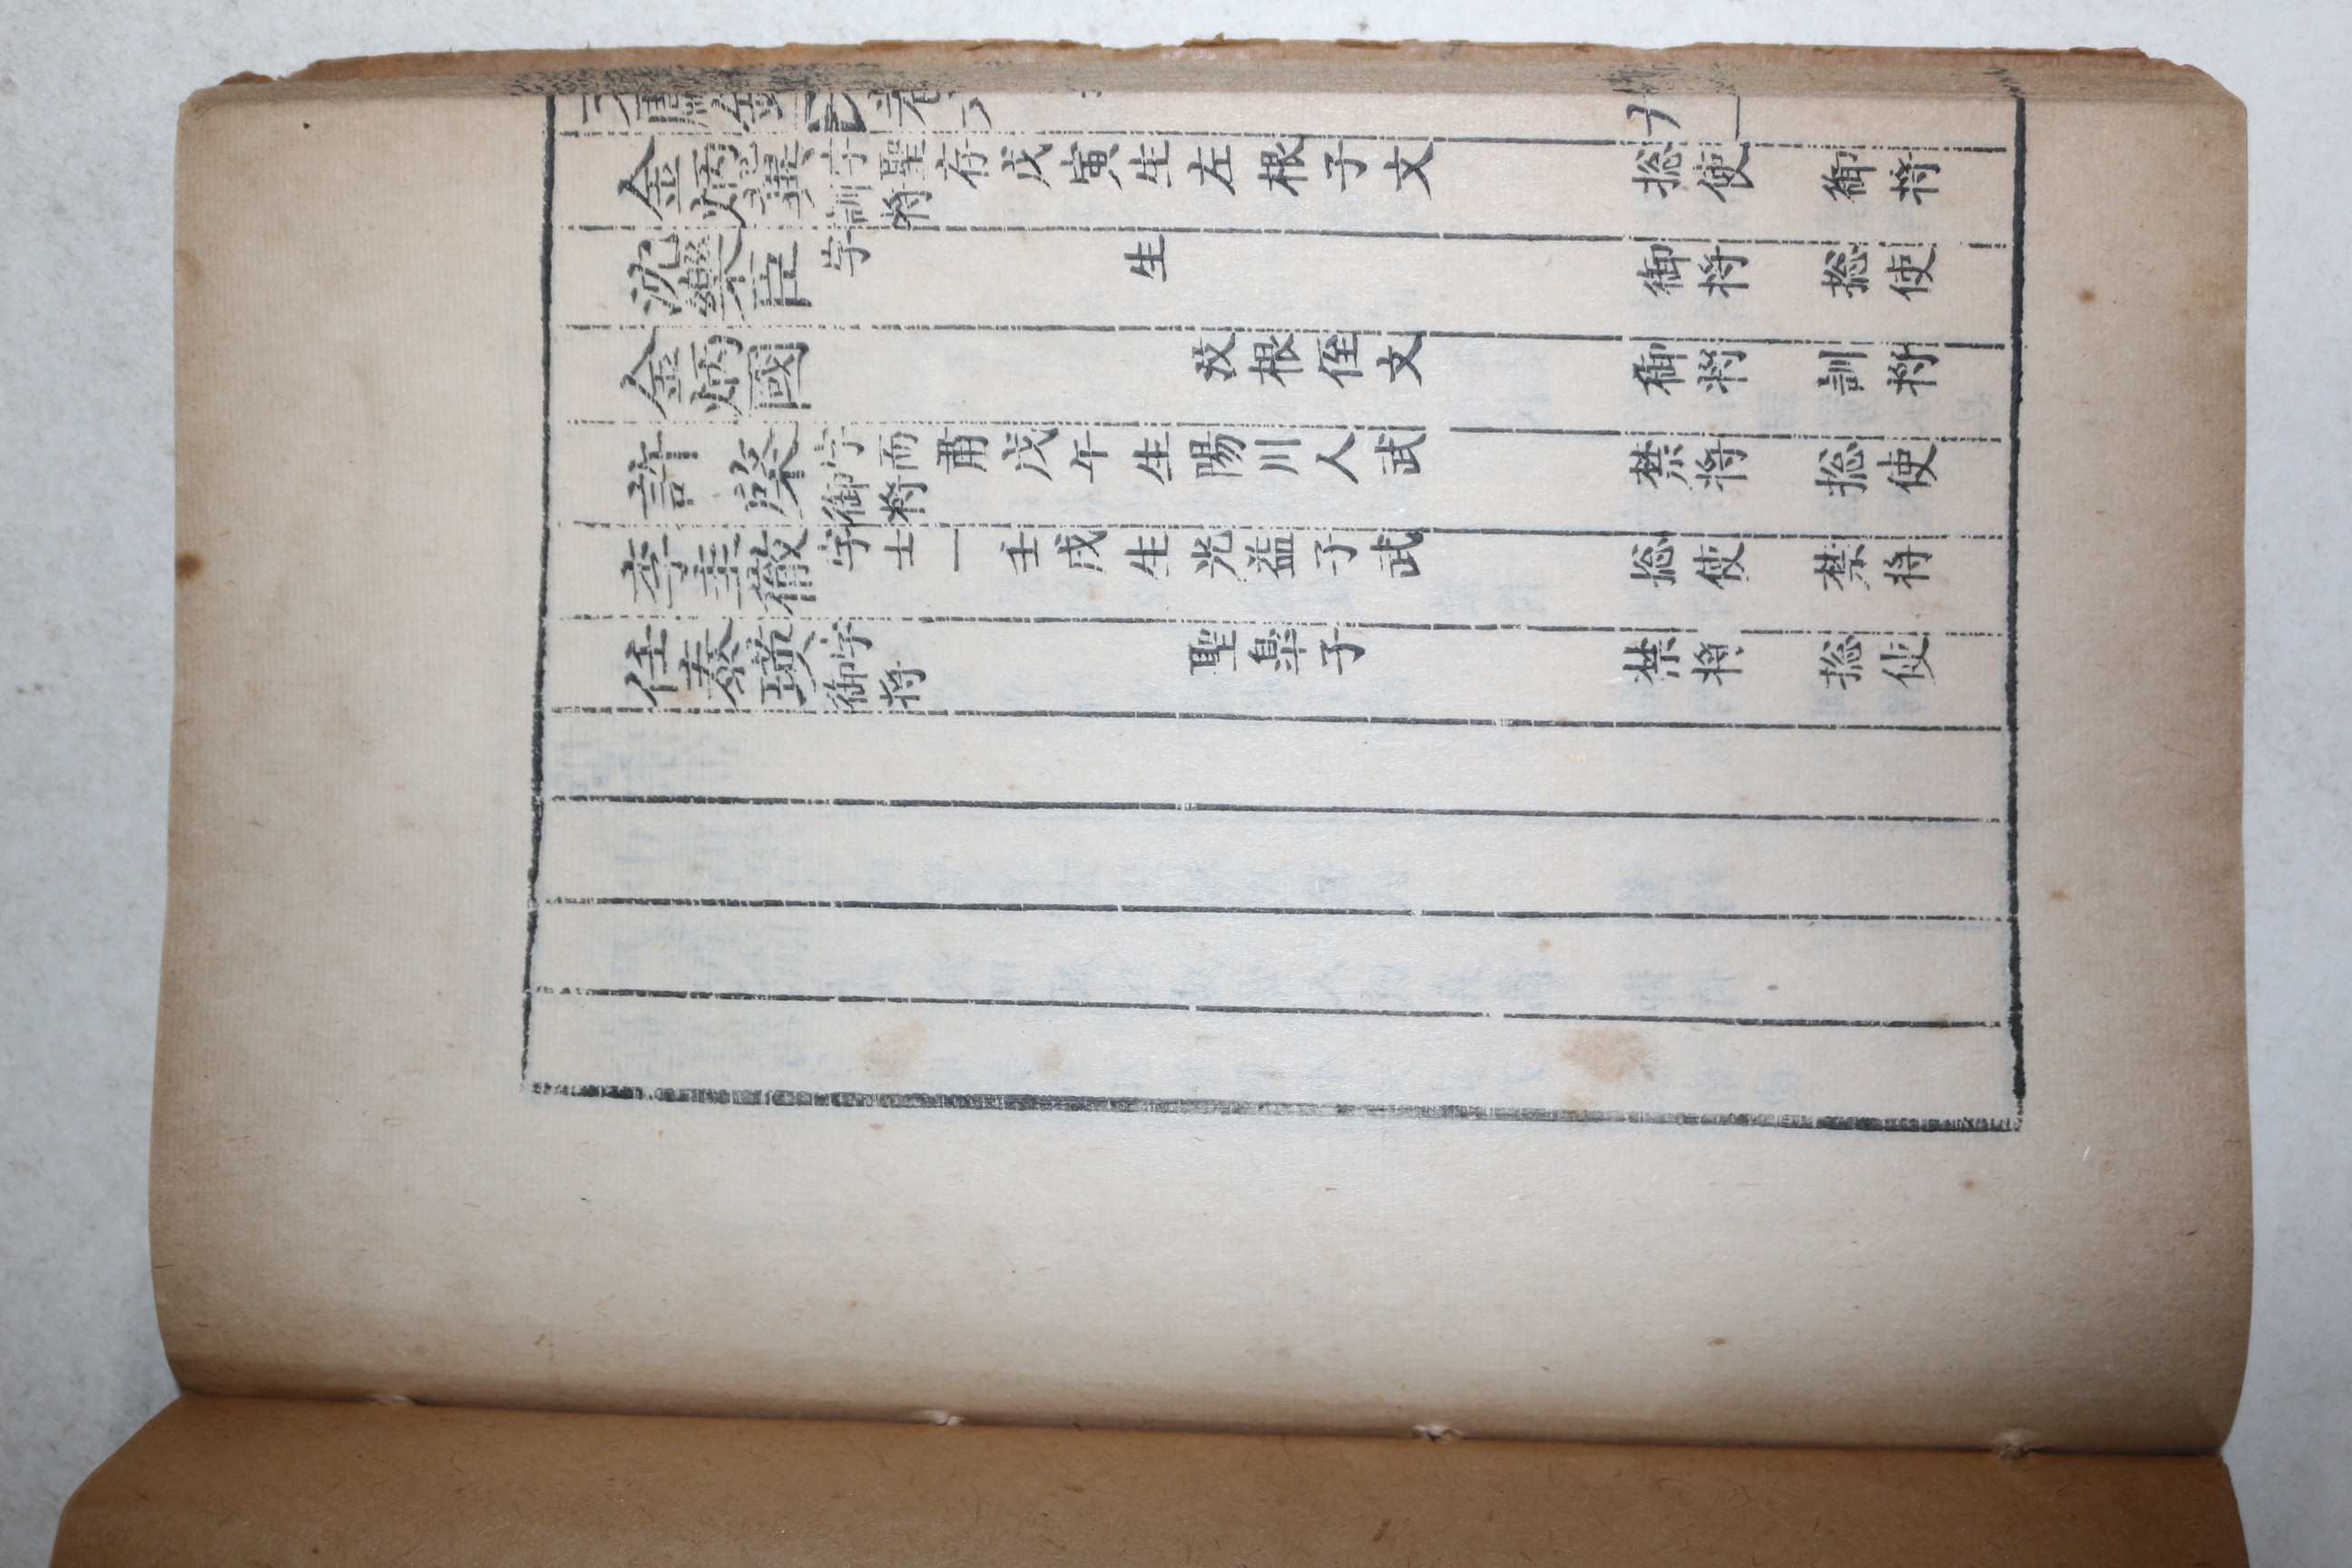 卷
金炳冀 字聖存戊寅生左根子文 捴使 御將
訓將
沈樂臣 字 生 御將 捴使
金炳國 汶根侄文 御將 訓將
許棨 字而肅戊午生陽川人武 禁將 捴使
御將
李圭徹 字士一壬戌生光益子武 捴使 禁將
任泰瑛 字 聖皐子 禁將 捴使
御將